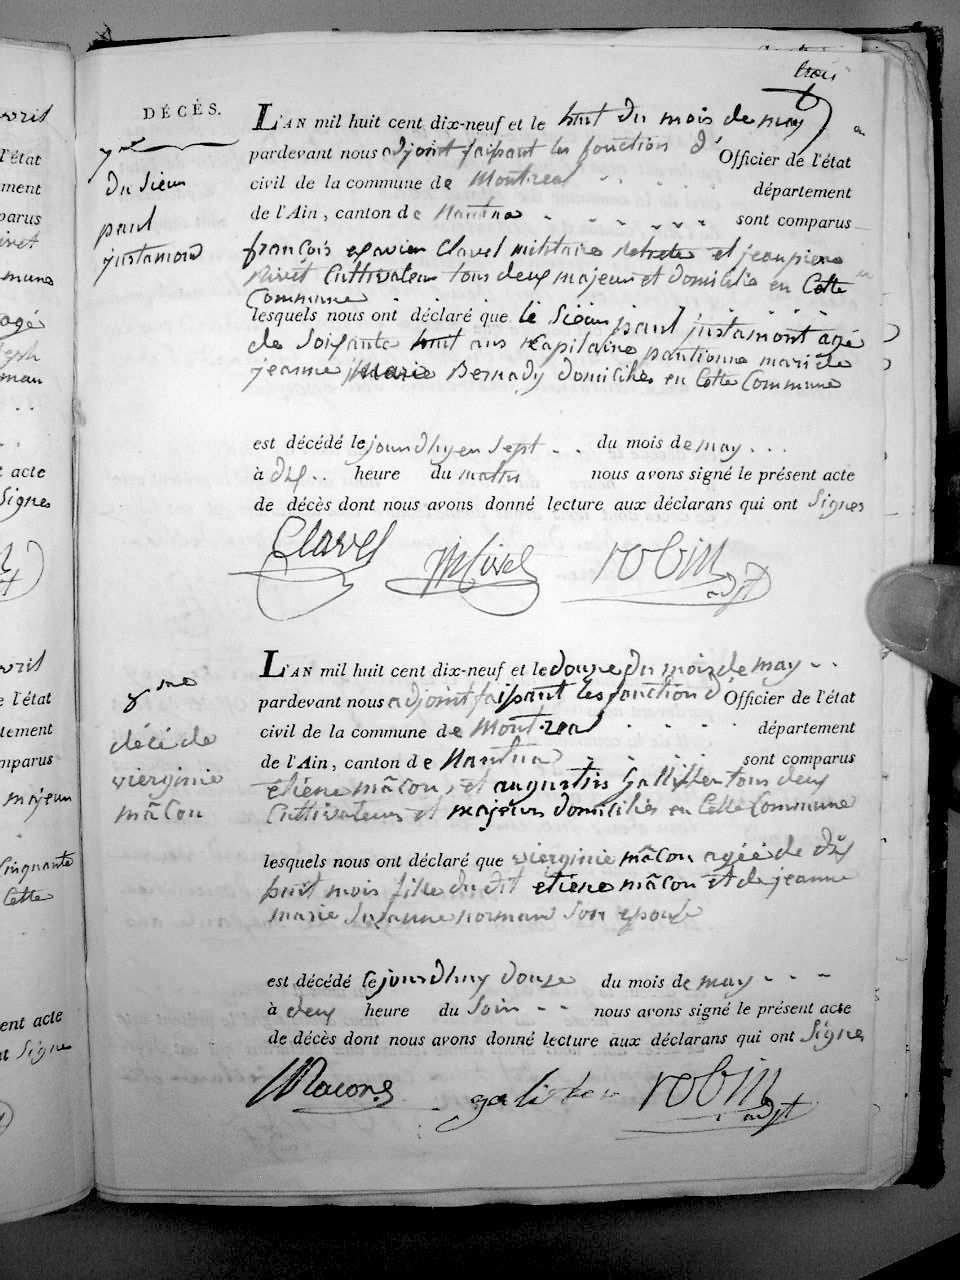 trois
DÉCÈS.
L'AN mil huit cent dix-neuf et le huit du mois de may
pardevant nous adjoint faisant les fonction d' Officier de l'état
civil de la commune de Montreal département
de l'Ain, canton de Nantua sont comparus
7me
du Sieur
paul
justamond
françois exavier Clavel militaire retraite et jean pierre
nivet Cultivateur tous deux majeur et domicilié en Cette
Commune
lesquels nous ont déclaré que le Sieur paul justamont agé
de Soixante huit ans Capitaine pantionne marié de
jeanne Marie Bernady domicilies en Cette Commune
est décédé le jourdhuy en Sept du mois de may
à dix heure du matin nous avons signé le présent acte
de décès dont nous avons donné lecture aux déclarans qui ont Signes
Clavel robin
adjt
8me
décé de
vierginie
mâcon
L'AN mil huit cent dix-neuf et le douze du mois de may
pardevant nous adjoint faisant les fonction d' Officier de l'état
civil de la commune de Montreal département
de l'Ain, canton de Nantua sont comparus
etiene mâcon, et augustin Galliffet tous deux
Cultivateurs et majeurs domiciliés en Cette Commune
lesquels nous ont déclaré que vierginie mâcon agée de dix
huit mois fille du dit etiene mâcon et de jeanne
marie Suzanne normand Son epouse
est décédé le jourdhuy douze du mois de may
à deux heure du Soir nous avons signé le présent acte
de décès dont nous avons donné lecture aux déclarans qui ont Signes
Macon robin
adjt